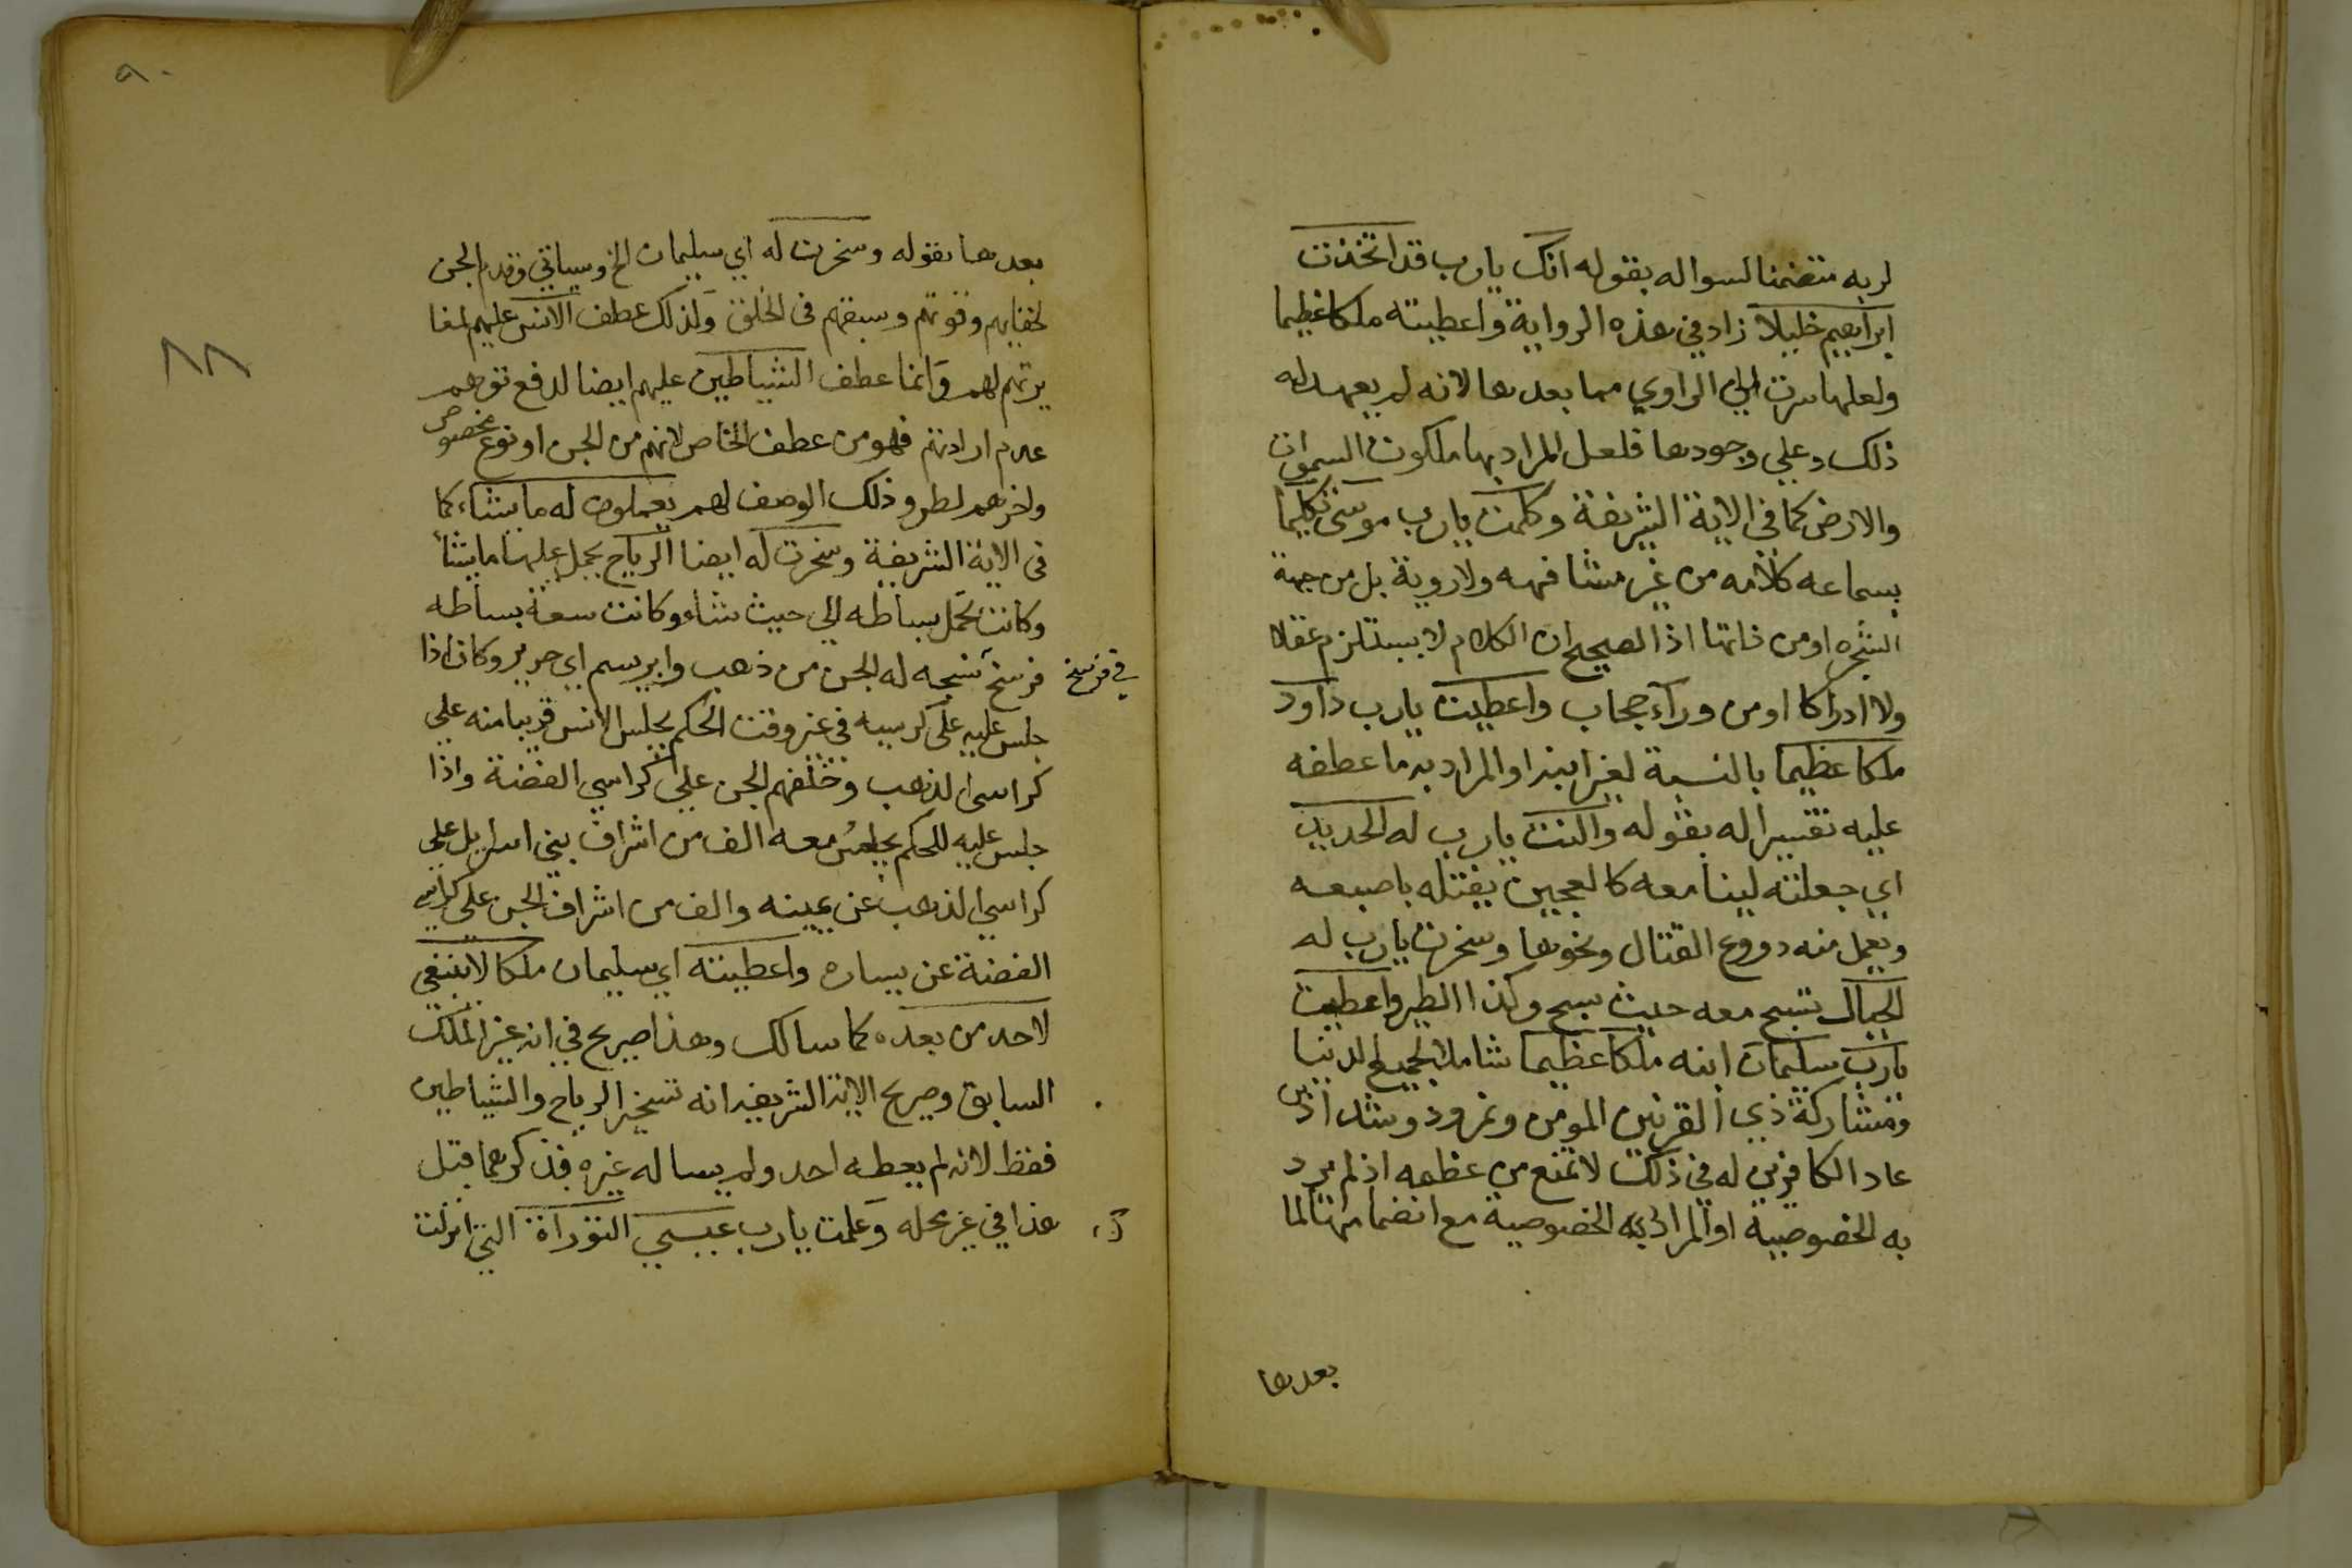 لربه متضمنا لسواله بقوله انك يارب قد اتخذت
ابراهيم خليلا زاد في هذه الرواية واعطيته ملكا عظيما
ولعلها سرت الي الراوي مما بعدها لانه لم يعهد له
ذلك وعلي وجودها فلعل المراد بها ملكوت السموات
والارض كما في الاية الشريفة وكلمت يارب موسى تكليما
بسماعه كلامه من غير مشافهه ولا روية بل من جهة
الشجره او من ذاتها اذ الصحيح ان الكلام لا يستلزم عقلا
ولا ادراكا او من ورآء حجاب واعطيت يارب داود
ملكا عظيما بالنسبة لغير ابنه او المراد به ما عطفه
عليه تفسيرا له بقوله والنت يارب له الحديد
اي جعلته لينا معه كالعجين يفتله باصبعه
ويعمل منه دروع القتال ونحوها وسخرت يارب له
الجبال تسبح معه حيث سبح وكذا الطير واعطيت
يارب سليمان ابنه ملكا عظيما شاملا لجميع الدنيا
ومشاركة ذي القرنين المومن ونمرود وشداد بن
عاد الكافرين له في ذلك لا تمنع من عظمه اذ لم يرد
به الخصوصية او المراد به الخصوصية مع انضمامها لما
بعدها
٩٠
بعدها بقوله وسخرت له اي سليمان الخ وسياتي وقدم الجن
لخفايهم وقوتهم وسبقهم في الخلق ولذلك عطف الانس عليهم لمغا
يرتهم لهم وانما عطف الشياطين عليهم ايضا لدفع توهم
عدم ارادتهم فهو من عطف الخاص لانهم من الجن او نوع مخصوص
واخرهم لطرو ذلك الوصف لهم يعملون له ما يشاء كما
في الاية الشريفة وسخرت له ايضا الرياح يحمل عليها ما يشأ
وكانت تحمل بساطه الي حيث شاء وكانت سعة بساطه
فرسخ نسجه له الجن من ذهب وابريسم اي حرير وكان اذا
في فرسخ
جلس عليه على كرسيه في غير وقت الحكم يجلس الانس قريبا منه علي
كراسي الذهب وخلفهم الجن علي كراسي الفضة واذا
جلس عليه للحكم يجلس معه الف من اشراف بني اسرايل علي
كراسي الذهب عن يمينه والف من اشراف الجن علي كراسي
الفضة عن يساره واعطيته اي سليمان ملكا لا ينبغي
لاحد من بعده كما سالك وهذا صريح في انه غير الملك
السابق وصريح الاية الشريفة انه تسخير الرياح والشياطين
فقط لانه لم يعطه احد ولم يساله غيره فذكرهما قبل
هذا في غير محله وعلمت يارب عيسي التوراة التي انزلت